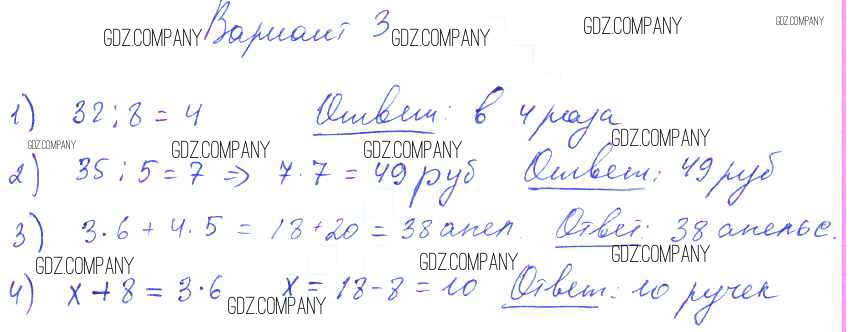 Вариант 3
GDZ.COMPANY GDZ.COMPANY GDZ.COMPANY GDZ.COMPANY
1) 32 : 8 = 4 Ответ: в 4 раза
GDZ.COMPANY GDZ.COMPANY GDZ.COMPANY GDZ.COMPANY
2) 35 : 5 = 7 => 7 · 7 = 49 руб Ответ: 49 руб
3) 3 · 6 + 4 · 5 = 18 + 20 = 38 апел. Ответ: 38 апельс.
GDZ.COMPANY GDZ.COMPANY GDZ.COMPANY
4) x + 8 = 3 · 6 x = 18 - 8 = 10 Ответ: 10 ручек
GDZ.COMPANY